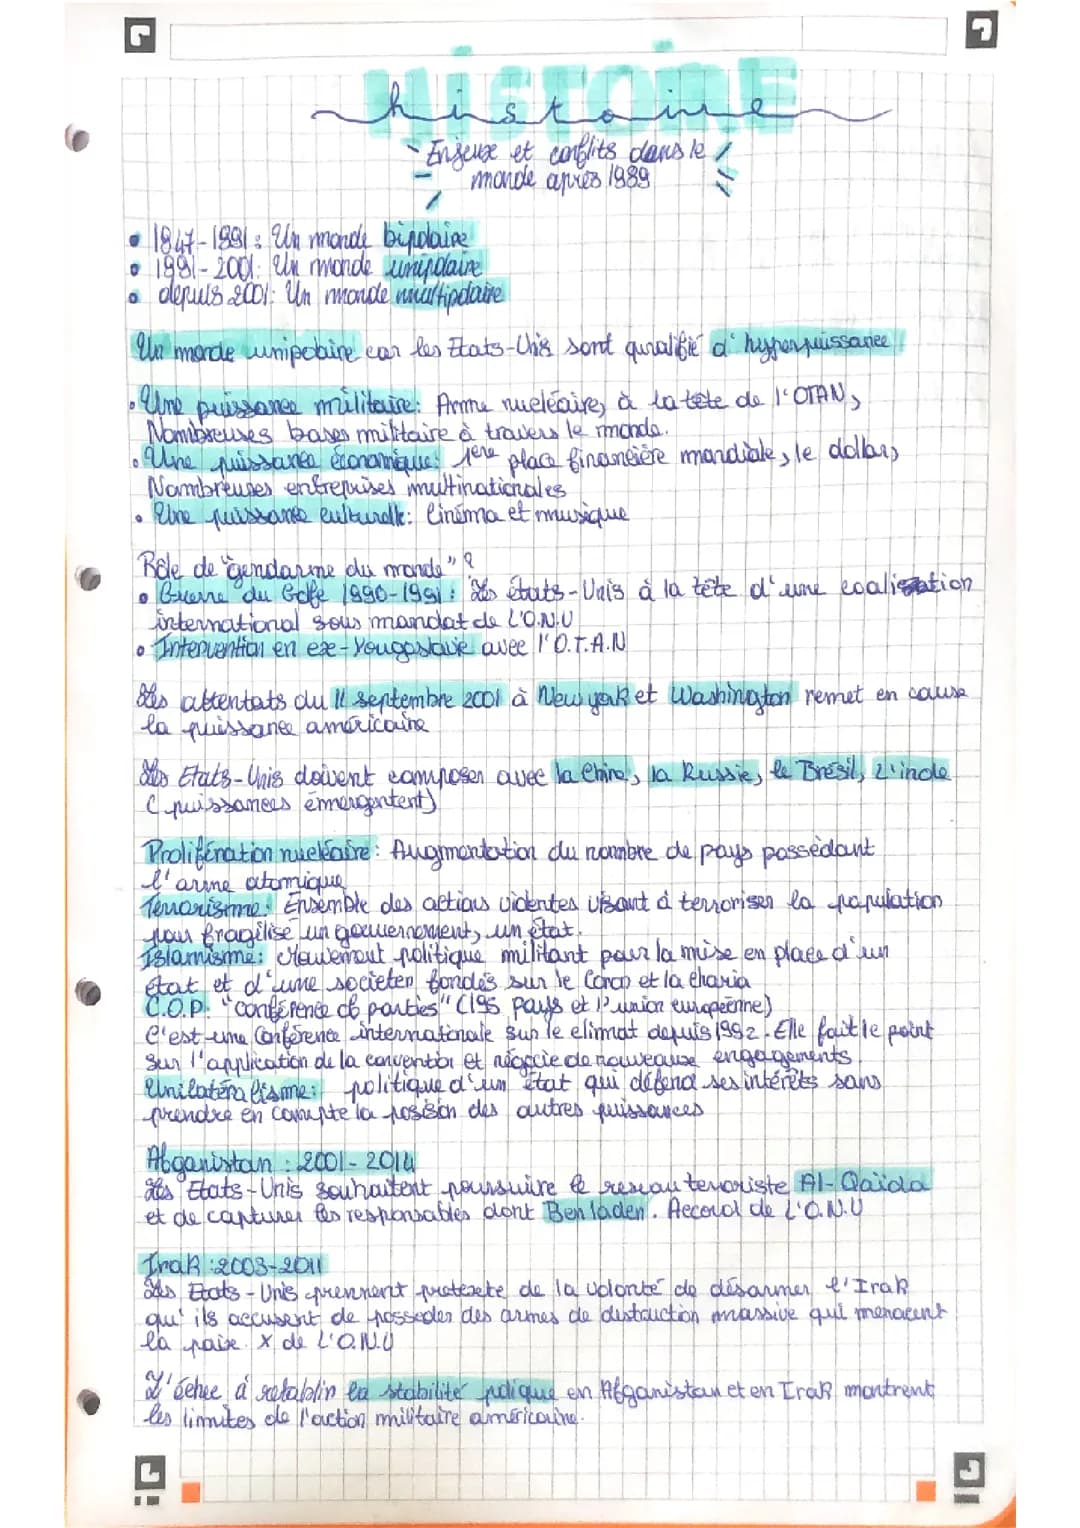 HISTOIRE
histoire
Enjeux et conflits dans le
monde après 1989
• 1947-1991 : Un monde bipolaire
• 1991-2001: Un monde unipolaire
• depuis 2001: Un monde multipolaire
Un monde unipolaire car les Etats-Unis sont qualifié d'hyperpuissance
• Une puissance militaire: Arme nucléaire, à la tête de l'OTAN,
Nombreuses bases militaire à travers le monde.
• Une puissance économique: 1ère place financière mondiale, le dollars
Nombreuses entreprises multinationales
• Une puissance culturelle: Cinéma et musique
Rôle de "gendarme du monde" ?
• Guerre du Golfe 1990-1991: Les états-Unis à la tête d'une coalisation
international sous mandat de L'O.N.U
• Intervention en exe-Yougoslavie avec l'O.T.A.N
Les attentats du 11 septembre 2001 à New york et Washington remet en cause
la puissance américaine
Les Etats-Unis doivent composer avec la Chine, la Russie, le Brésil, L'inde
(puissances émergentent)
Prolifération nucléaire: Augmentation du nombre de pays possèdant
l'arme atomique
Terrorisme: Ensemble des actions violentes visant à terroriser la population
pour fragilisé un gouvernement, un état.
Islamisme: Mouvement politique militant pour la mise en place d'un
état et d'une societer fondés sur le Coran et la charia
C.O.P: "conférence of parties" (195 pays et l'union européenne)
C'est une Conférence internationale sur le climat depuis 1992. Elle fait le point
sur l'application de la convention et négocie de nouveaux engagements
Unilatéralisme: politique d'un état qui défend ses intérêts sans
prendre en compte la position des autres puissances
Afganistan : 2001-2014
Les Etats-Unis souhaitent poursuivre le reseau terroriste Al-Qaïda
et de capturer les responsables dont Ben laden. Accord de L'O.N.U
Irak : 2003-2011
Les Etats-Unis prennent pretexte de la volonté de désarmer l'Irak
qu'ils accusent de posseder des armes de distruction massive qui menacent
la paix. X de L'O.N.U
L'échec à retablir la stabilité polique en Afganistan et en Irak montrent
les limites de l'action militaire américaine.